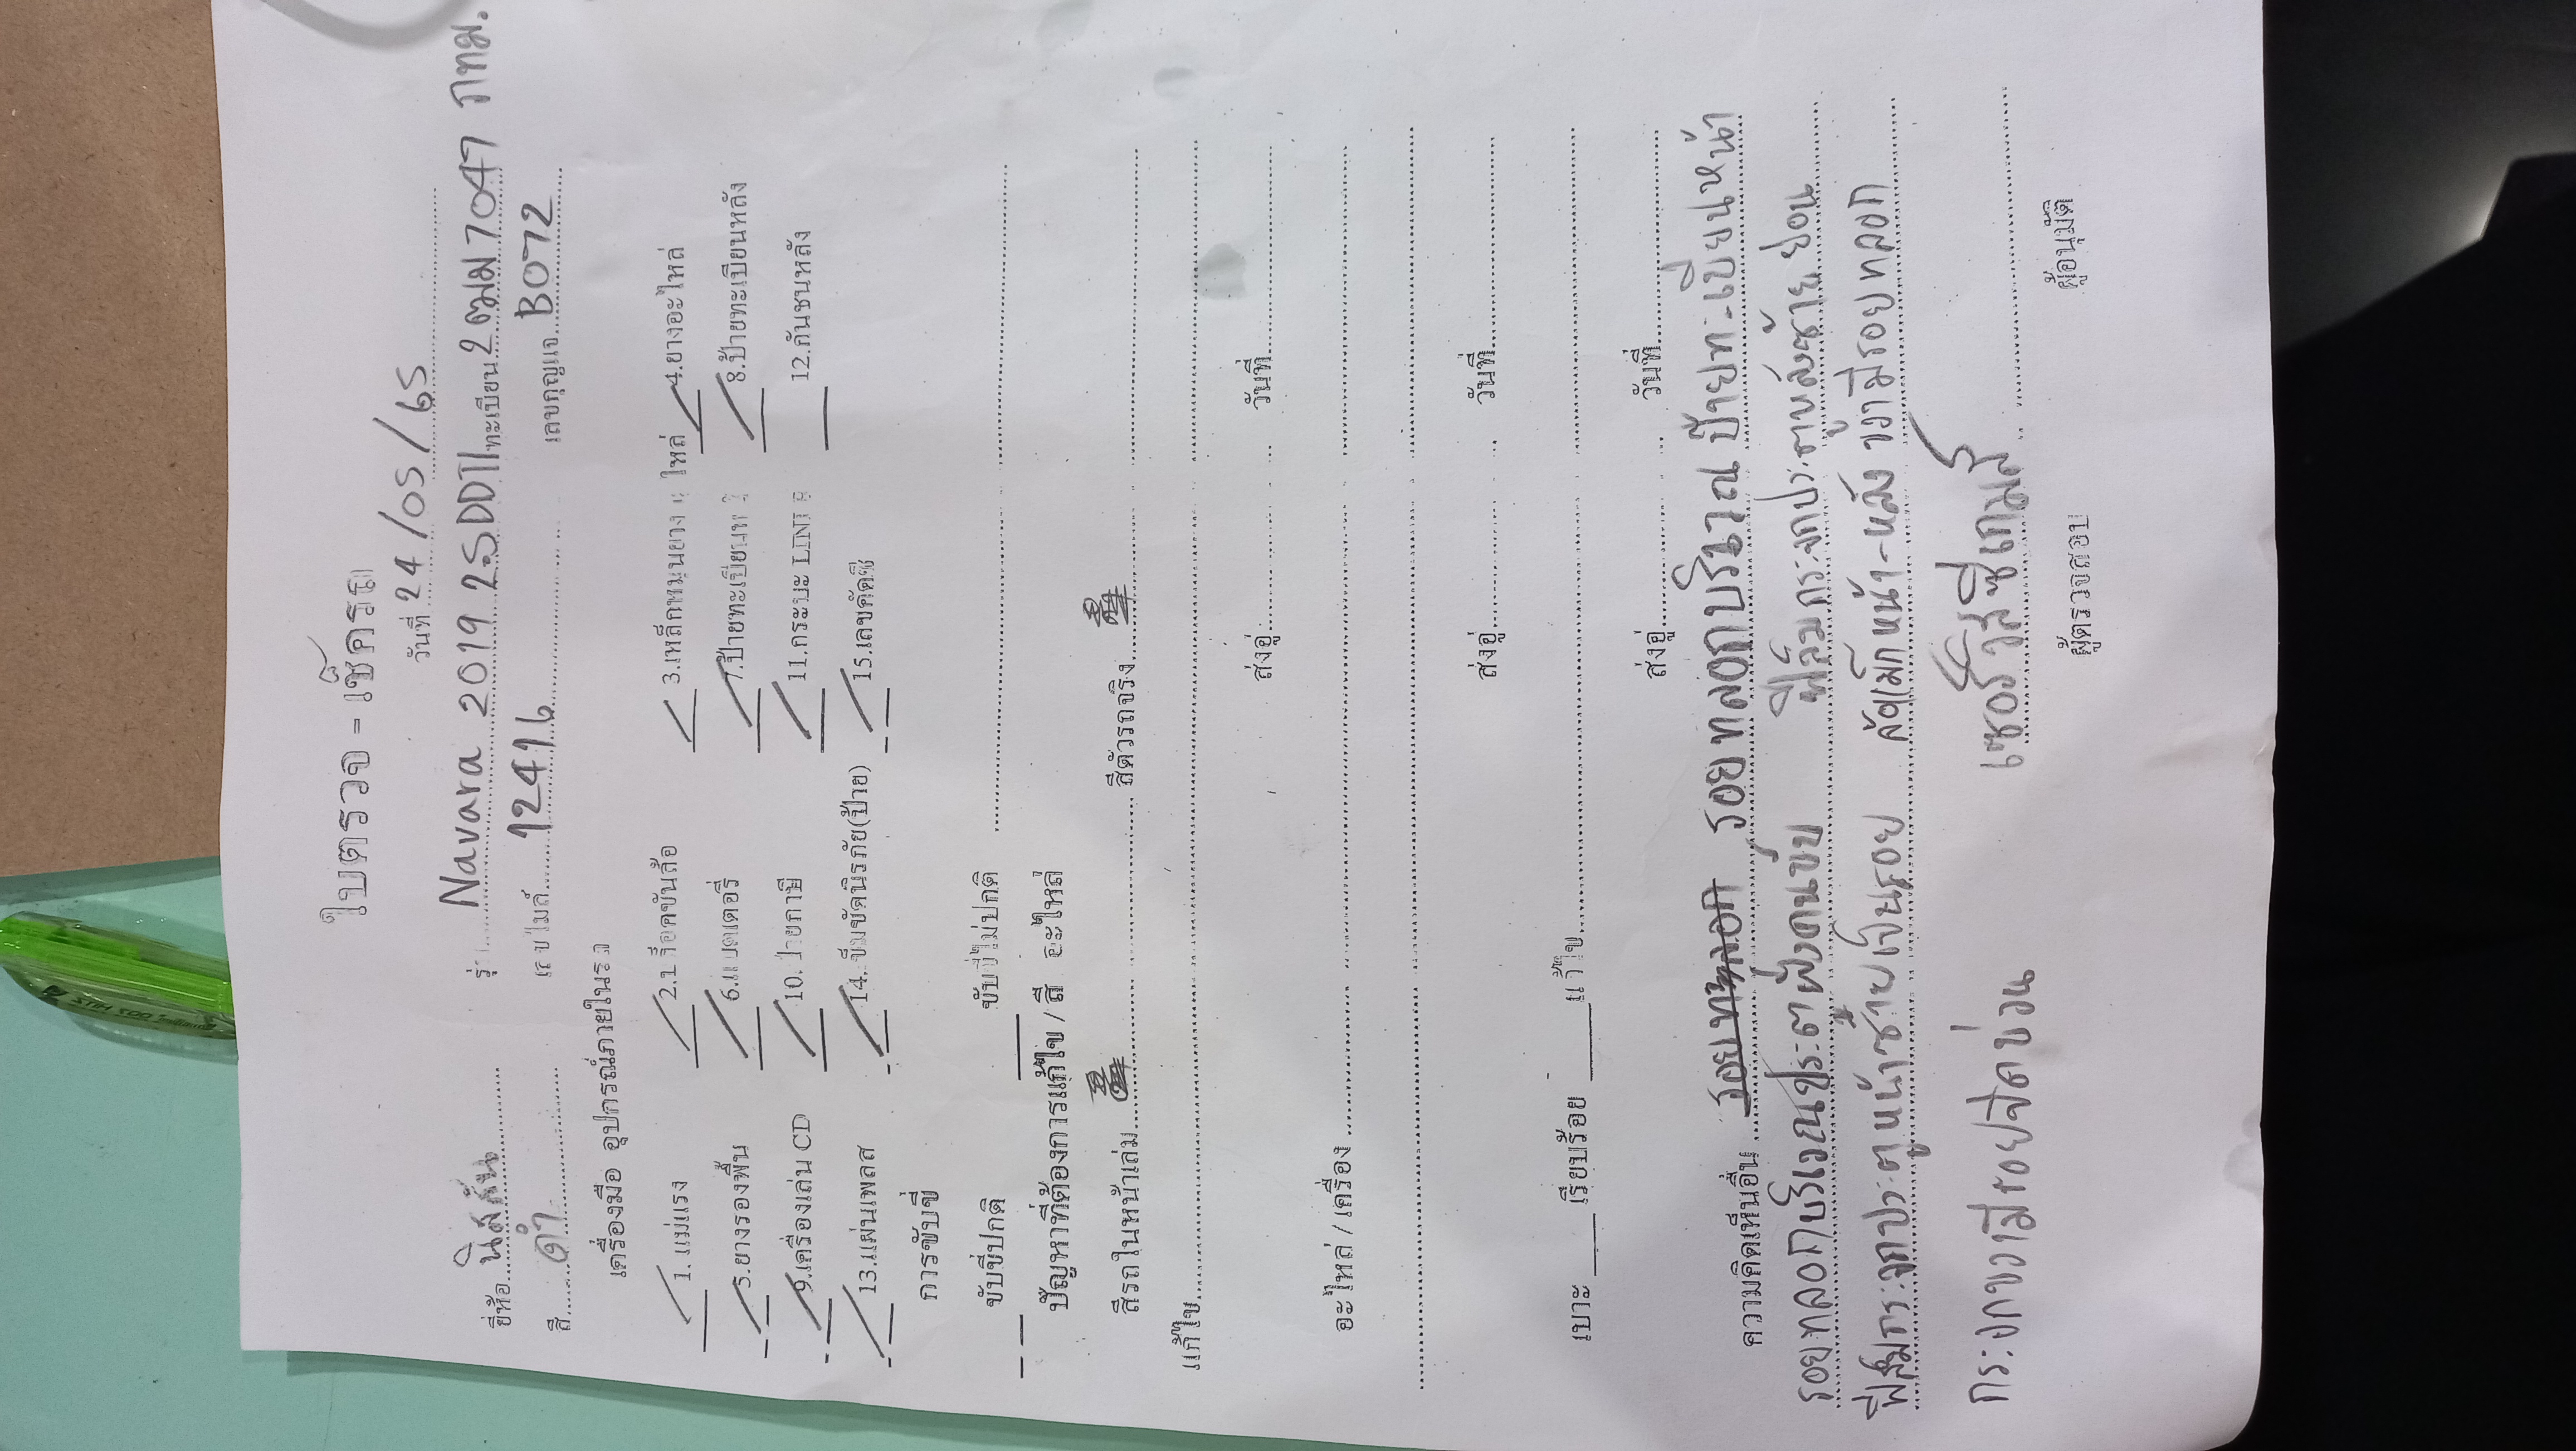 ใบตรวจ - เช็ครถ
วันที่ 24/05/65
ยี่ห้อ นิสสัน รุ่น Navara 2019 2.5DDTI ทะเบียน 2ฒม 7047 กทม.
สี ดำ เลขไมล์ 12416 เลขกุญแจ B072
เครื่องมือ อุปกรณ์ภายในรถ
1. แม่แรง 2. ล๊อคขันล้อ 3.เหล็กหมุนยางอะไหล่ 4.ยางอะไหล่
5.ยางรองพื้น 6.แบตเตอรี่ 7.ป้ายทะเบียนหน้า 8.ป้ายทะเบียนหลัง
9.เครื่องเล่น CD 10. ป้ายภาษี 11.กระบะ LINER 12.กันชนหลัง
13.แผ่นเพลส 14. เข็มขัดนิรภัย(ป้าย) 15.เลขคัสซี
การขับขี่
ขับขี่ปกติ ขับขี่ไม่ปกติ
ปัญหาที่ต้องการแก้ไข / สี อะไหล่
สีรถในหน้าเล่ม สีตัวรถจริง
แก้ไข
ส่งอู่ วันที่
อะไหล่ / เครื่อง
ส่งอู่ วันที่
เบาะ เรียบร้อย แก้ไข
ส่งอู่ วันที่
ความคิดเห็นอื่น รอยถลอกบริเวณ ป้ายทะเบียนหน้า
รอยถลอกบริเวณประตูฝั่งคนขับ ฟิล์มกระจกประตูหลังซ้าย ย่อน
ฟิล์มกระจกประตูหน้าซ้ายเป็นรอย ล้อแม็กหน้า-หลัง ขวามีรอยถลอก
กระจกขวามีรอยขีดข่วน เซอร์วิสซีเกมส์
ผู้ตรวจสอบ ผู้อนุมัติ